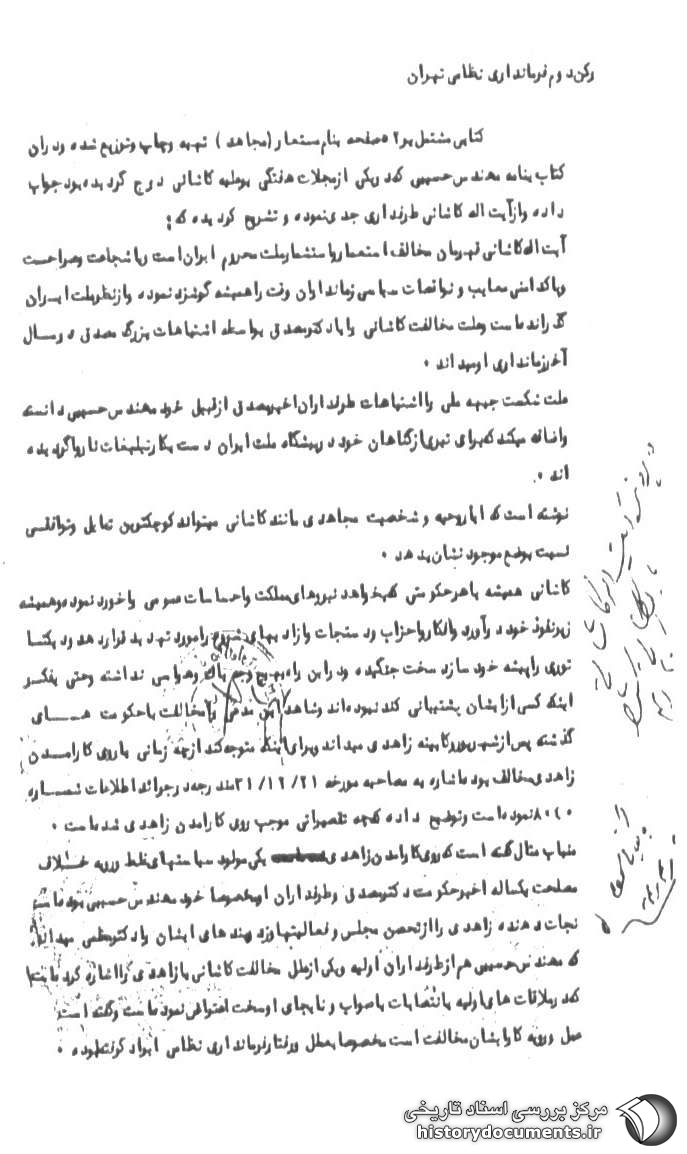 رکن دوم فرمانداری نظامی تهران
کتابی مشتمل بر ۲۵ صفحه بنام مستعار (مجاهد) تهیه وچاپ وتوزیع شده ودران
کتاب بنامه مهندس حسیبی که در یکی ازمجلات هفتگی برعلیه کاشانی درج گردیده بود جواب
داده وازآیت اله کاشانی طرفداری جدی نموده و تشریح کردیده که:
آیت اله کاشانی قهرمان مخالف استعمار واستثمار ملت محروم ایران است وباشجاعت وصراحت
وپاکدامنی معایب و نواقصات سیاسی زمانداران وقت راهمیشه گوشزد نموده وازنظرملت ایران
گذرانده است وعلت مخالفت کاشانی رابادکترمصدق بواسطه اشتباهات بزرگ مصدق درسال
آخرزمانداری اومیداند ۰
علت شکست جبهه ملی رااشتباهات طرفداران اخیرمصدق ازقبیل خود مهندس حسیبی دانسته
واضافه میکند که برای تبری ازگناهان خود درپیشگاه ملت ایران دست بکارتبلیغات ناروا گردیده
اند ۰
نوشته است که ایاروحیه و شخصیت مجاهدی مانند کاشانی میتواند کوچکترین تمایل وتوافقی
نسبت بوضع موجود نشان بدهد ۰
کاشانی همیشه باهرحکومتی که بخواهد نیروهای مملکت واحساسات عمومی راخورد نموده وهمیشه
زیرنفوذ خود درآورد وافکار واحزاب ودستجات وازادیهای مشروع رامورد تهدید قراردهد ودیکتا
توری راپیشه خود سازد سخت جنگیده ودراین راه بهیچ وجه باک وهراسی نداشته وحتی بفکر
اینکه کسی ازایشان پشتیبانی کند نبوده اند وشاهد این مدعی رامخالفت باحکومت های
گذشته پس ازشهریورو کابینه زاهدی میداند وبرای اینکه متوجه کند ازچه زمانی باروی کارامدن
زاهدی مخالف بوده اشاره به مصاحبه مورخه ۳۱/۱۲/۲۱ مندرجه درجرائد اطلاعات شماره
۸۰۴۰ نموده است وتوضیح داده که چه تقصیراتی موجب روی کارامدن زاهدی شده است ۰
منباب مثال گفته است که روی کارامدن زاهدی یکی مولود سیاستهای غلط ورویه خلاف
مصلحت یکساله اخیرحکومت دکترمصدق وطرفداران اومخصوصا خود مهندس حسیبی بوده است
نجات دهنده زاهدی را ازتحصن مجلس وفعالیتها وزدوبندهای ایشان رادکترمعظمی میداند
که مهندس حسیبی هم ازطرفداران اولیه ویکی ازعلل مخالفت کاشانی بازاهدی رااشاره کرده است
که درملاقات های اولیه باانتصابات ناصواب و نابجای اوسخت اعتراض نموده است وگفته است
عمل ورویه کارایشان مخالفت است مخصوصا بعمل ورفتارفرمانداری نظامی ایراد گرفته بوده ۰
در پرونده آیت اله کاشانی
مرکز بررسی اسناد تاریخی
historydocuments.ir